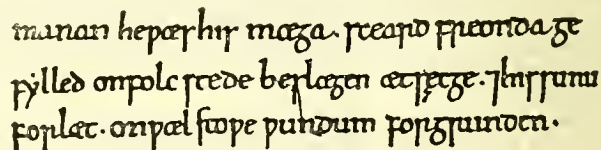 manan heƿæshis mæga. sceard freonda ge
fylled onfolc stede beslægen ætsęcge. ⁊hissunu
forlæt. onƿæl stoƿe ƿundum forgruinden.